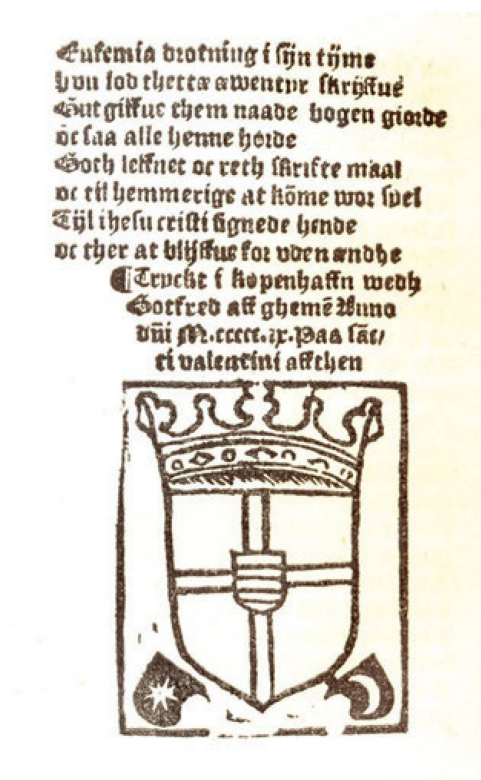 Eufemia drotning i sijn tijme
hvn lod thettæ æwentyr skrijffue
Gut giffue them naade hogen giorde
oc saa alle henne horde
Goth leffnet oc reth skrifte maal
oc til hemmerige at kōme wor siel
Tijl ihesu cristi signede hende
oc ther at blijffue for vden ændhe
¶Tryckt i kopenhaffn wedh
Gotfred aff ghemē Anno
dn̄i M.ccccc.ix. Paa sāc/
ti valentini affthen